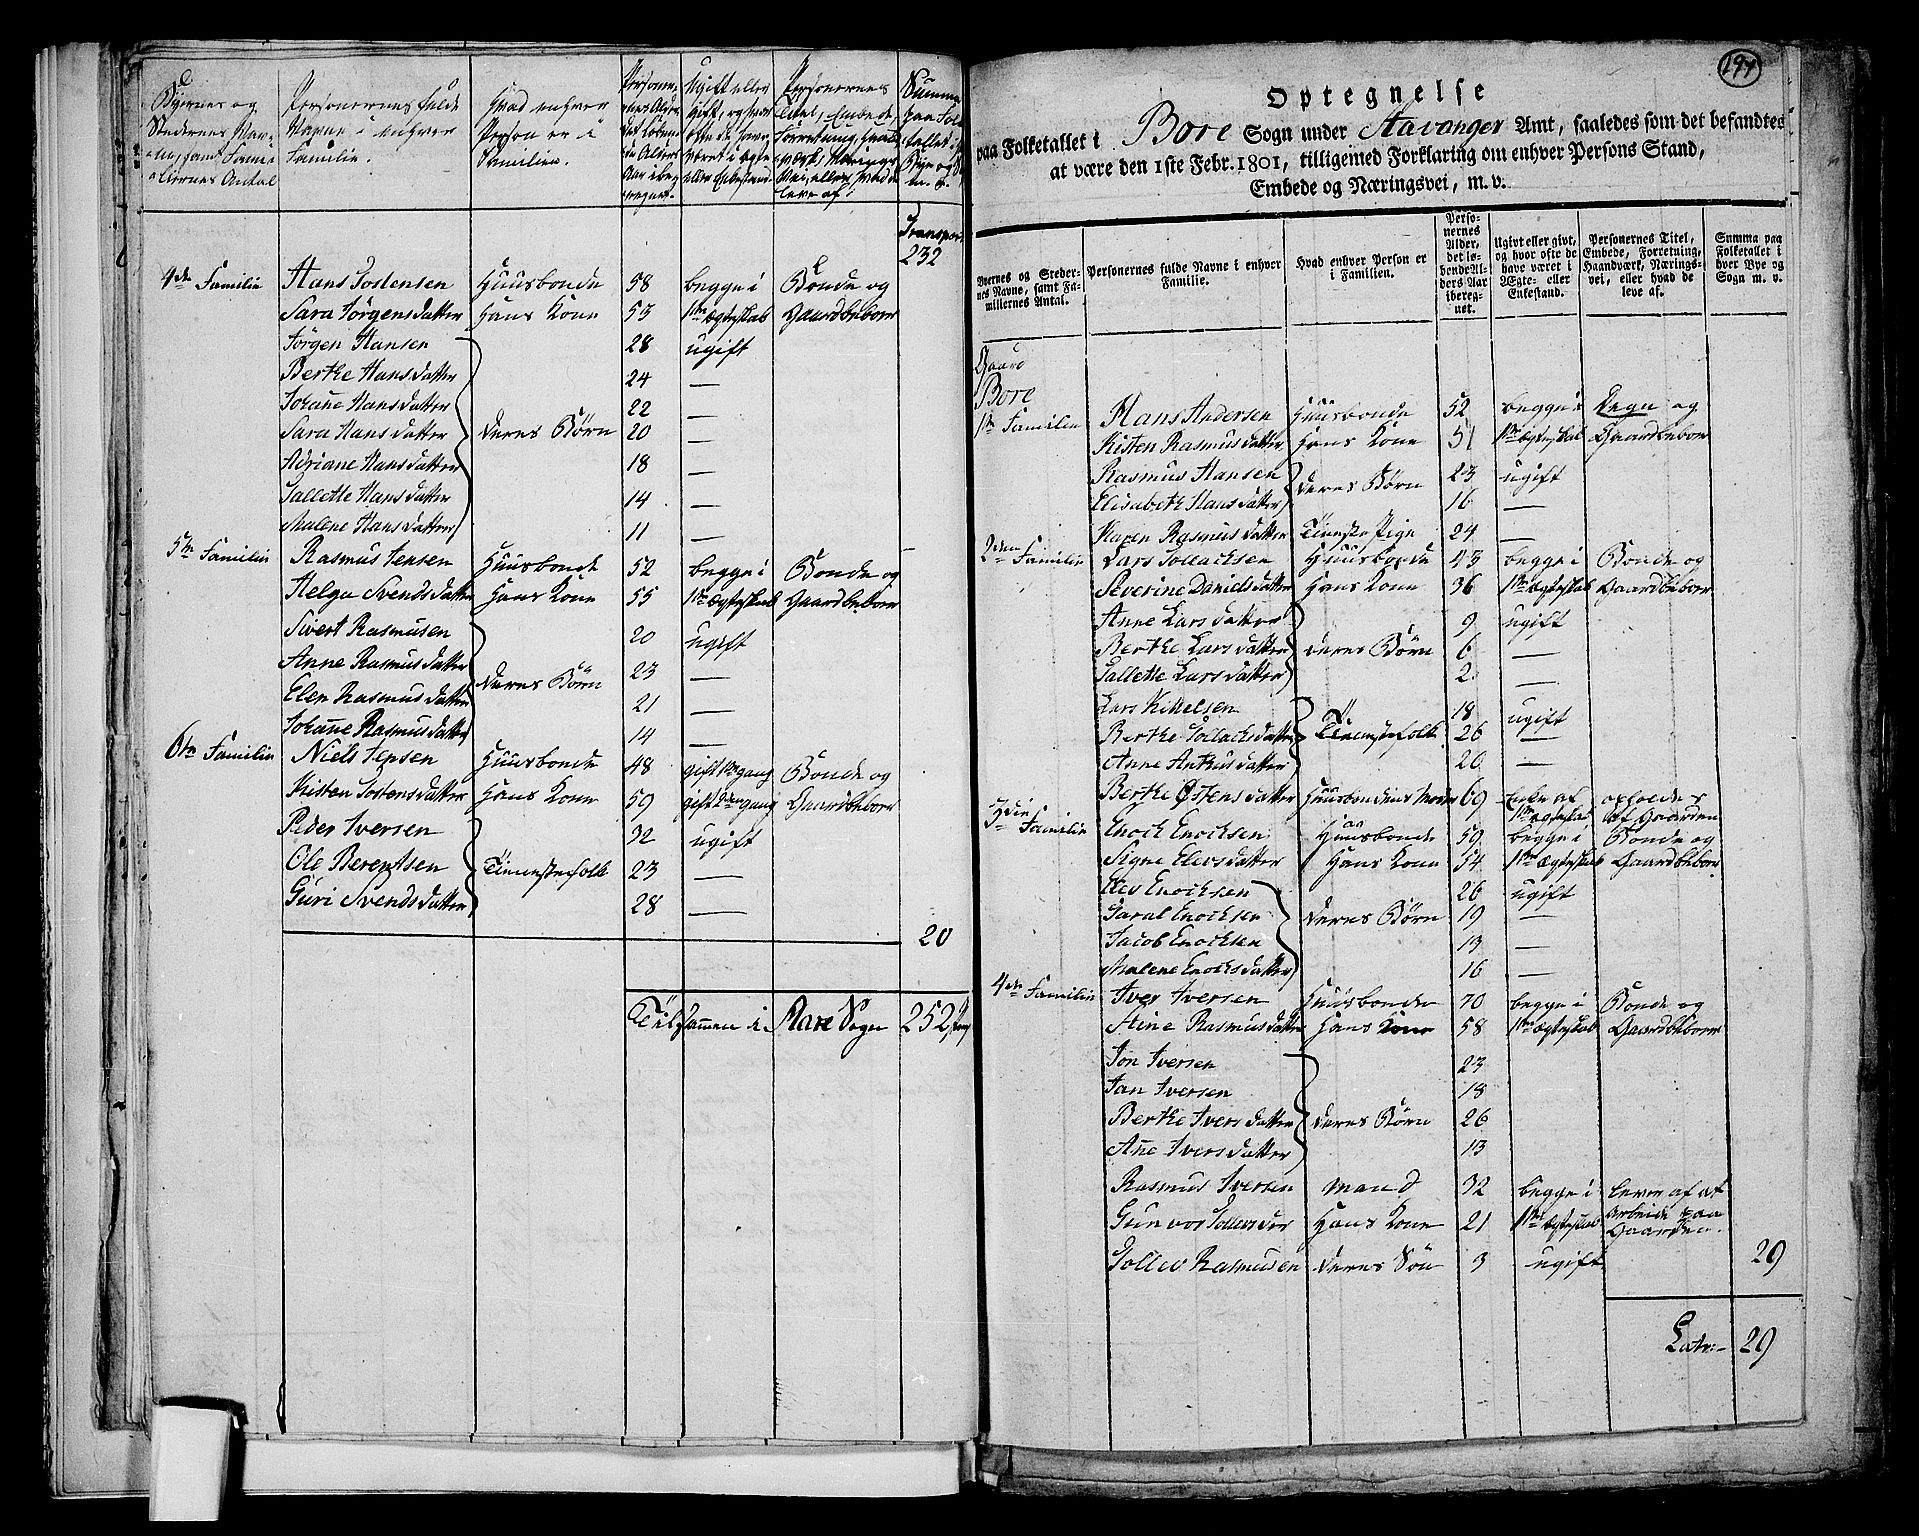 Byernes og Stedernes Navne, samt Familiernes Antal
Personernes fulde Navne i enhver Familie.
Hvad enhver Person er i Familien.
Personernes Alder, det løbende Alders Aar iberegnet.
Ugift eller Gift, og hvor ofte de have været i Ægte- eller Enkestand.
Personernes Titel, Embede, Forretning, Haandværk, Næringsvei, eller hvad de leve af.
Summa paa Folketallet i
Transport
232
4de Familie Hans Jostensen Huusbonde 58 begge i Bonde og
Sara Jörgensdatter Hans Kone 53 1ste Ægteskab Gaardbeboer
Jörgen Hansen 28 ugift
Berthe Hansdatter 24 —
Johanne Hansdatter 22 —
Sara Hansdatter deres Børn 20 —
Adriane Hansdatter 18 —
Tallette Hansdatter 14 —
Malene Hansdatter 11 —
5te Familie Rasmus Jensen Huusbonde 52 begge i Bonde og
Helga Svendsdatter Hans Kone 55 1ste Ægteskab Gaardbeboer
Sivert Rasmusen 20 ugift
Anne Rasmusdatter deres Børn 23 —
Elen Rasmusdatter 21 —
Johanne Rasmusdatter 14 —
6te Familie Niels Jensen Huusbonde 48 gift 1ste gang Bonde og
Kisten Jostensdatter Hans Kone 59 gift 2den gang Gaardbeboer
Peder Iversen 32 ugift
Ole Berentsen Tienestefolk 23 —
Guri Svendsdatter 28 —
20
Tilsammen i Sogn 252
194
Optegnelse
paa Folketallet i Bore Sogn under Stavanger Amt, saaledes som det befandtes
at være den 1ste Febr. 1801, tilligemed Forklaring om enhver Persons Stand,
Embede og Næringsvei, m. v.
Byernes og Stedernes Navne, samt Familiernes Antal.
Personernes fulde Navne i enhver Familie.
Hvad enhver Person er i Familien.
Personernes Alder, det løbende Alders Aar iberegnet.
Ugivt eller givt, og hvor ofte de have været i Ægte- eller Enkestand.
Personernes Titel, Embede, Forretning, Haandværk, Næringsvei, eller hvad de leve af.
Summa paa Folketallet i hver Bye og Sogn m. v.
Gaard
Bore
1ste Familie Hans Andersen Huusbonde 52 begge i Degn og
Kisten Rasmusdatter Hans Kone 51 1ste Ægteskab Gaardbeboer
Rasmus Hansen deres Børn 23 ugift
Elisabeth Hansdatter 16 —
Karen Rasmusdatter Tieneste Pige 24 —
2den Familie Lars Tollachsen Huusbonde 43 begge i Bonde og
Severine Danielsdatter Hans Kone 36 1ste Ægteskab Gaardbeboer
Anne Larsdatter 9 ugift
Berthe Larsdatter deres Børn 6 —
Tallette Larsdatter 2 —
Lars Kittelsen 18 ugift
Berthe Tollachsdatter Tienestefolk 26 —
Anne datter 20 —
Berthe Østensdatter Huusbondens Moder 69 Enke af 1ste Ægteskab opholdes af Gaarden
3die Familie Enoch Enochsen Huusbonde 59 begge i Bonde og
Signe Elevsdatter Hans Kone 54 1ste Ægteskab Gaardbeboer
Elev Enochsen 26 ugift
Taral Enochsen deres Børn 19 —
Jacob Enochsen 13 —
Malene Enochsdatter 16 —
4de Familie Iver Iversen Huusbonde 70 begge i Bonde og
Stine Rasmusdatter Hans Kone 58 1ste Ægteskab Gaardbeboer
Jon Iversen 23
Jan Iversen 18
Berthe Iversdatter deres Børn 26
Anne Iversdatter 13
Rasmus Iversen Mand 32 begge i lever af at
Gunvor Hans Kone 21 1ste Ægteskab Arbeide paa Gaarden.
Tollev Rasmusen deres Søn 3 ugift 29
Latr: 29